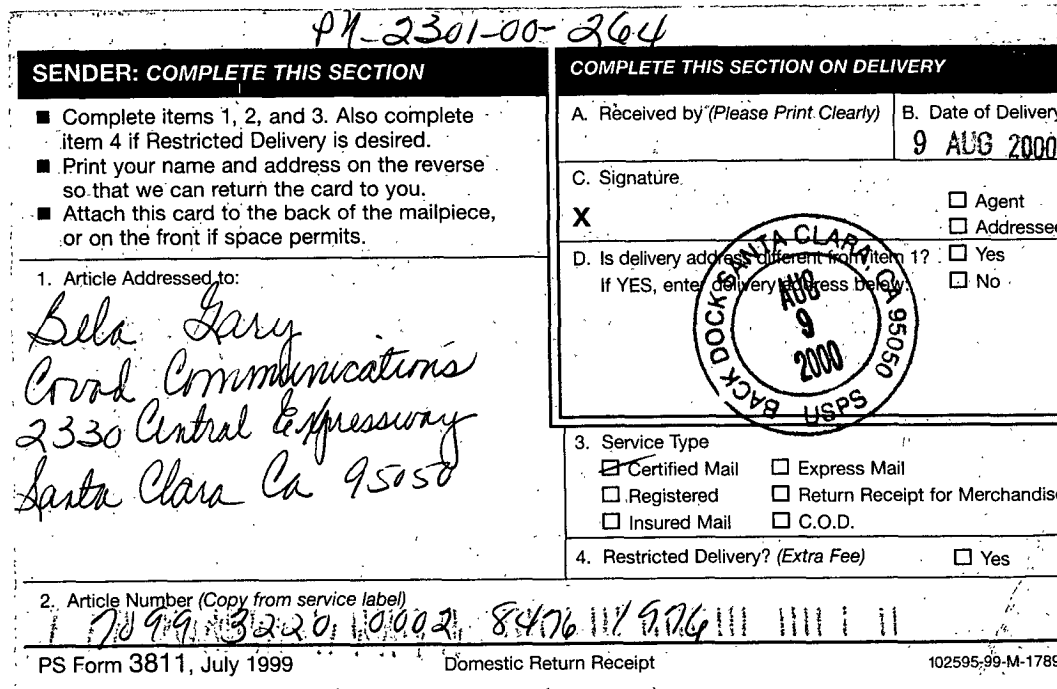 PM-2301-00-264
SENDER: COMPLETE THIS SECTION
■ Complete items 1, 2, and 3. Also complete
item 4 if Restricted Delivery is desired.
■ Print your name and address on the reverse
so that we can return the card to you.
■ Attach this card to the back of the mailpiece,
or on the front if space permits.
1. Article Addressed to:
Bela Gary
Covad Communications
2330 Central Expressway
Santa Clara Ca 95050
2. Article Number (Copy from service label)
7099 3220 0002 8476 1976
COMPLETE THIS SECTION ON DELIVERY
A. Received by (Please Print Clearly)
B. Date of Delivery
9 AUG 2000
C. Signature
X
☐ Agent
☐ Addressee
D. Is delivery address different from item 1? ☐ Yes
If YES, enter delivery address below: ☐ No
BACK DOCK SANTA CLARA, CA 95050
AUG
9
2000
USPS
3. Service Type
☑ Certified Mail ☐ Express Mail
☐ Registered ☐ Return Receipt for Merchandise
☐ Insured Mail ☐ C.O.D.
4. Restricted Delivery? (Extra Fee) ☐ Yes
PS Form 3811, July 1999 Domestic Return Receipt 102595-99-M-1789